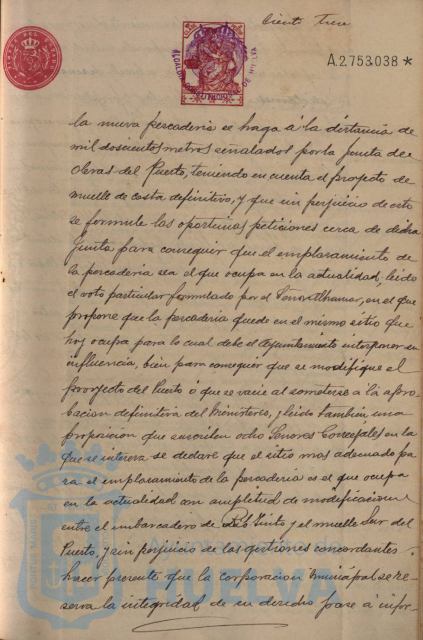 Ciento Trece
A.2.753.038 *
ALCALDIA CONSTITUCIONAL DE HUELVA
la nueva pescaderia se haga á la distancia de
mil doscientos metros señalados por la Junta de
Obras del Puerto, teniendo en cuenta el proyecto de
muelle de costa definitivo, y que sin perjuicio de esto
se formule las oportunas peticiones cerca de dicha
Junta para conseguir que el emplazamiento de
la pescaderia sea el que ocupa en la actualidad, leido
el voto particular formulado por el Señor Alhamar, en el que
propone que la pescaderia quede en el mismo sitio que
hoy ocupa para lo cual debe el Ayuntamiento interponer su
influencia, bien para conseguir que se modifique el
proyecto del Puerto ó que se varie al someterse á la apro-
bacion definitiva del Ministerio, y leido tambien una
proposicion que suscriben ocho Señores Concejales en la
que se interesa se declare que el sitio mas adecuado pa
ra el emplazamiento de la pescaderia es el que ocupa
en la actualidad con amplitud de modificaciones
entre el embarcadero de Rio Tinto y el muelle Sur del
Puerto, y sin perjuicio de las gestiones concordantes
hacer presente que la corporacion municipal se re-
serva la integridad de su derecho pase á infor-
Ayuntamiento de
HUELVA